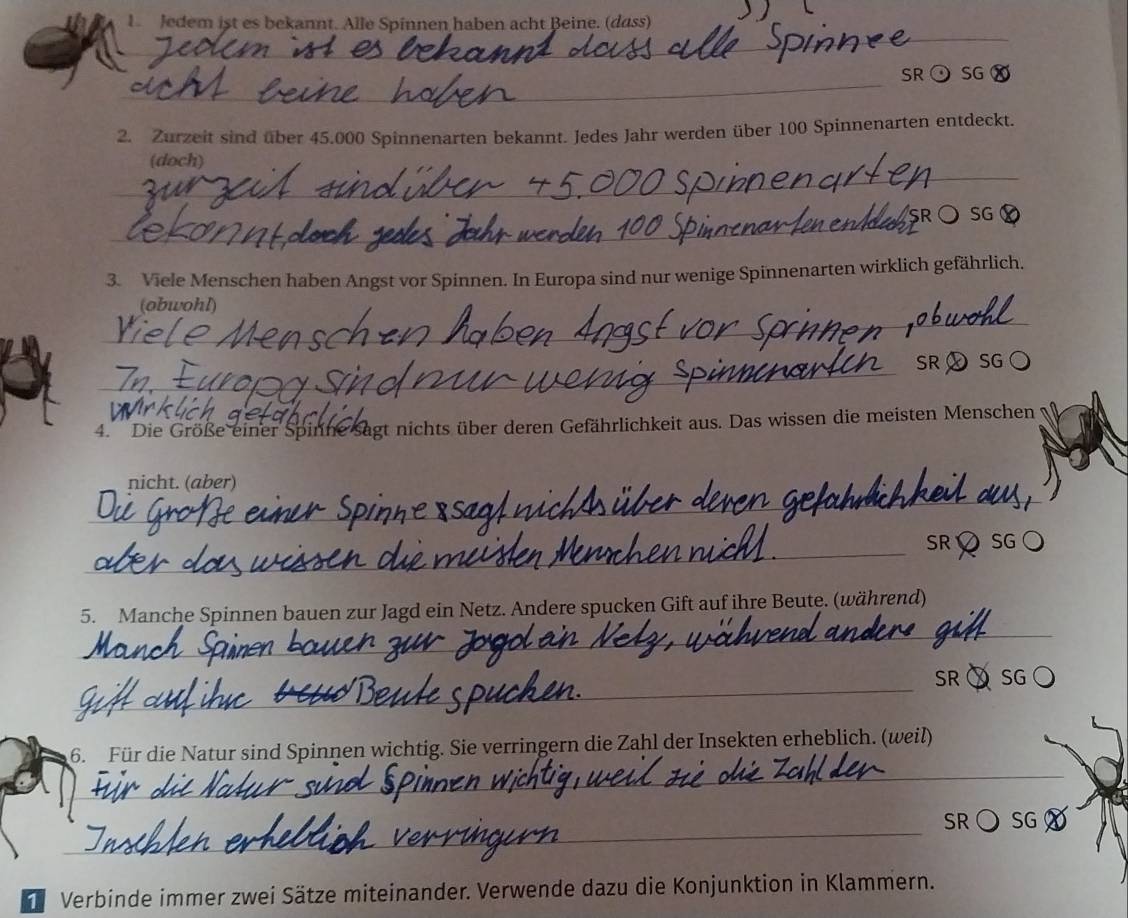 1. Jedem ist es bekannt. Alle Spinnen haben acht Beine. (dass)
Jedem ist es bekannt dass alle Spinnee
acht beine haben
SR SG
2. Zurzeit sind über 45.000 Spinnenarten bekannt. Jedes Jahr werden über 100 Spinnenarten entdeckt.
(doch)
zurzeit sind über 45.000 Spinnenarten
bekonnt, doch jedes Jahr werden 100 Spinnenarten entdeckt
SR SG
3. Viele Menschen haben Angst vor Spinnen. In Europa sind nur wenige Spinnenarten wirklich gefährlich.
(obwohl)
Viele Menschen haben Angst vor Spinnen, obwohl
In Europa sind nur wenig Spinnenarten
SR SG
wirklich gefährlich
4. Die Größe einer Spinne sagt nichts über deren Gefährlichkeit aus. Das wissen die meisten Menschen
nicht. (aber)
Die Große einer Spinne sagt nichts über deren gefährlichkeit aus,
aber das wissen die meisten Menschen nicht.
SR SG
5. Manche Spinnen bauen zur Jagd ein Netz. Andere spucken Gift auf ihre Beute. (während)
Manch Spinen bauen zur Jagd ein Netz, während andere gift
gift auf ihre Beute spucken.
SR SG
6. Für die Natur sind Spinnen wichtig. Sie verringern die Zahl der Insekten erheblich. (weil)
Für die Natur sind Spinnen wichtig, weil sie die Zahl der
Insekten erheblich verringern
SR SG
1 Verbinde immer zwei Sätze miteinander. Verwende dazu die Konjunktion in Klammern.